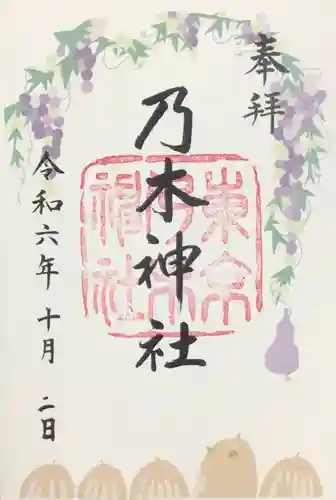 奉拝
乃木神社
東京
乃木
神社
令和六年 十月 二日